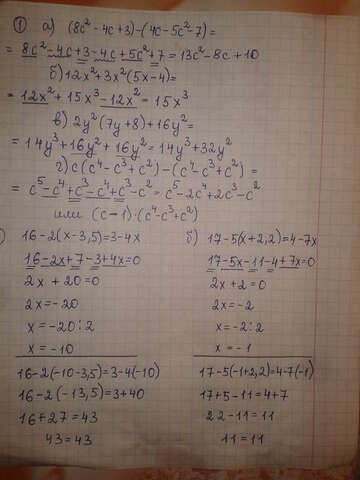 ① а) (8c² - 4c + 3) - (4c - 5c² - 7) =
= 8c² - 4c + 3 - 4c + 5c² + 7 = 13c² - 8c + 10
б) 12x² + 3x²(5x - 4) =
= 12x² + 15x³ - 12x² = 15x³
в) 2y²(7y + 8) + 16y² =
= 14y³ + 16y² + 16y² = 14y³ + 32y²
г) c(c⁴ - c³ + c²) - (c⁴ - c³ + c²) =
= c⁵ - c⁴ + c³ - c⁴ + c³ - c² = c⁵ - 2c⁴ + 2c³ - c²
или (c - 1)·(c⁴ - c³ + c²)
16 - 2(x - 3,5) = 3 - 4x
16 - 2x + 7 - 3 + 4x = 0
2x + 20 = 0
2x = -20
x = -20 : 2
x = -10
16 - 2(-10 - 3,5) = 3 - 4(-10)
16 - 2(-13,5) = 3 + 40
16 + 27 = 43
43 = 43
б) 17 - 5(x + 2,2) = 4 - 7x
17 - 5x - 11 - 4 + 7x = 0
2x + 2 = 0
2x = -2
x = -2 : 2
x = -1
17 - 5(-1 + 2,2) = 4 - 7(-1)
17 + 5 - 11 = 4 + 7
22 - 11 = 11
11 = 11